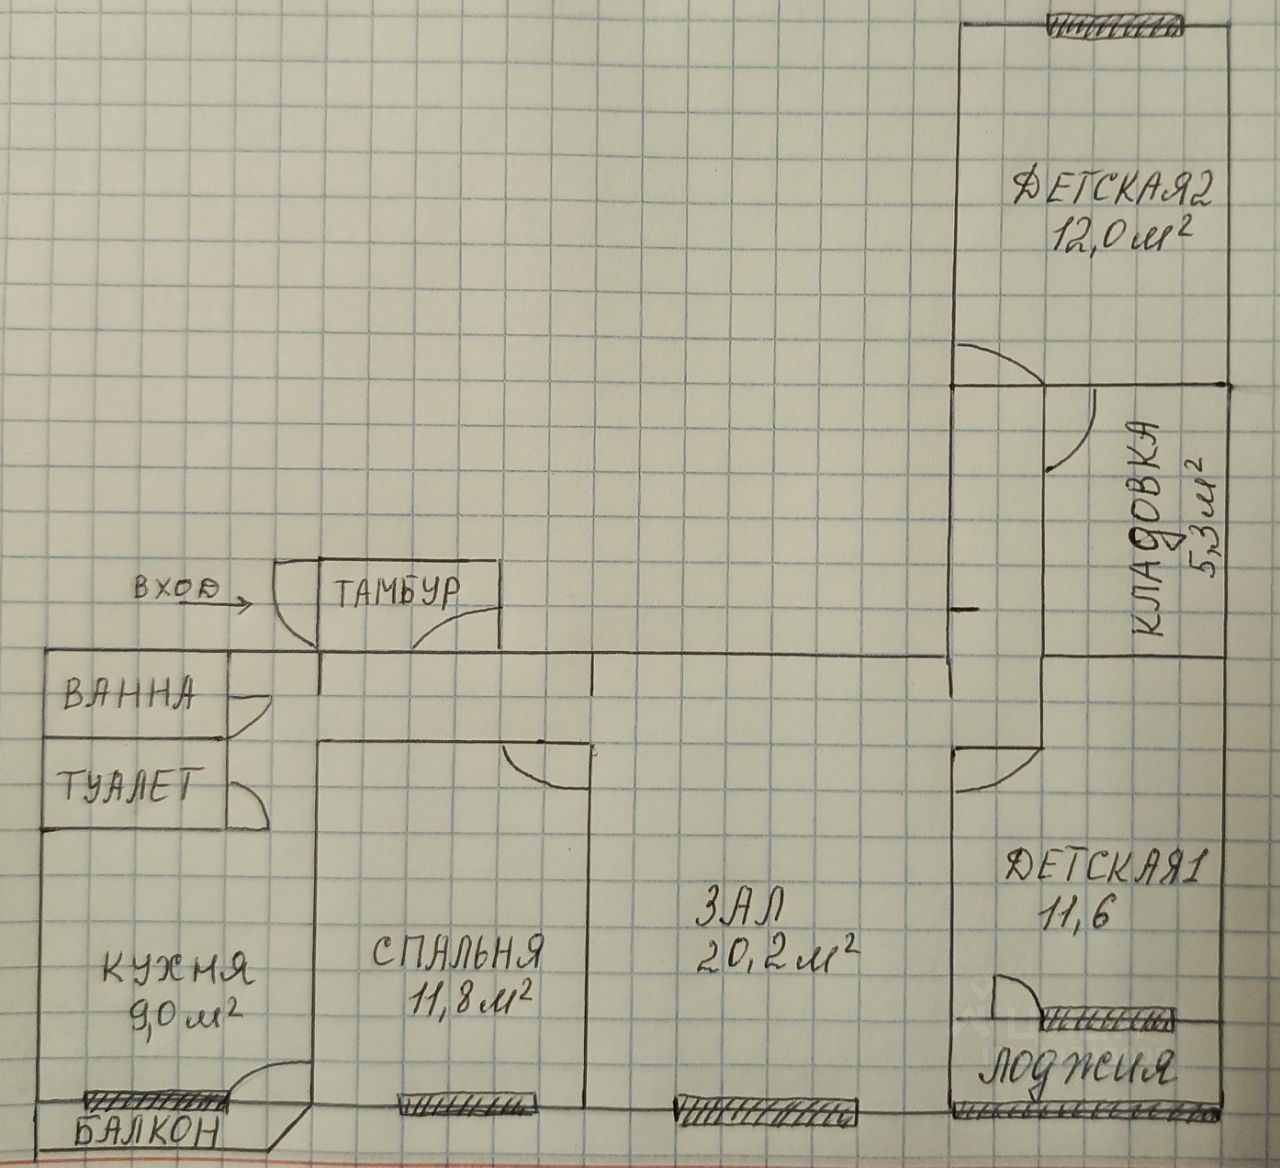 ДЕТСКАЯ2
12,0 м²
КЛАДОВКА
5,3 м²
ВХОД
ТАМБУР
ВАННА
ТУАЛЕТ
КУХНЯ
9,0 м²
БАЛКОН
СПАЛЬНЯ
11,8 м²
ЗАЛ
20,2 м²
ДЕТСКАЯ1
11,6
ЛОДЖИЯ